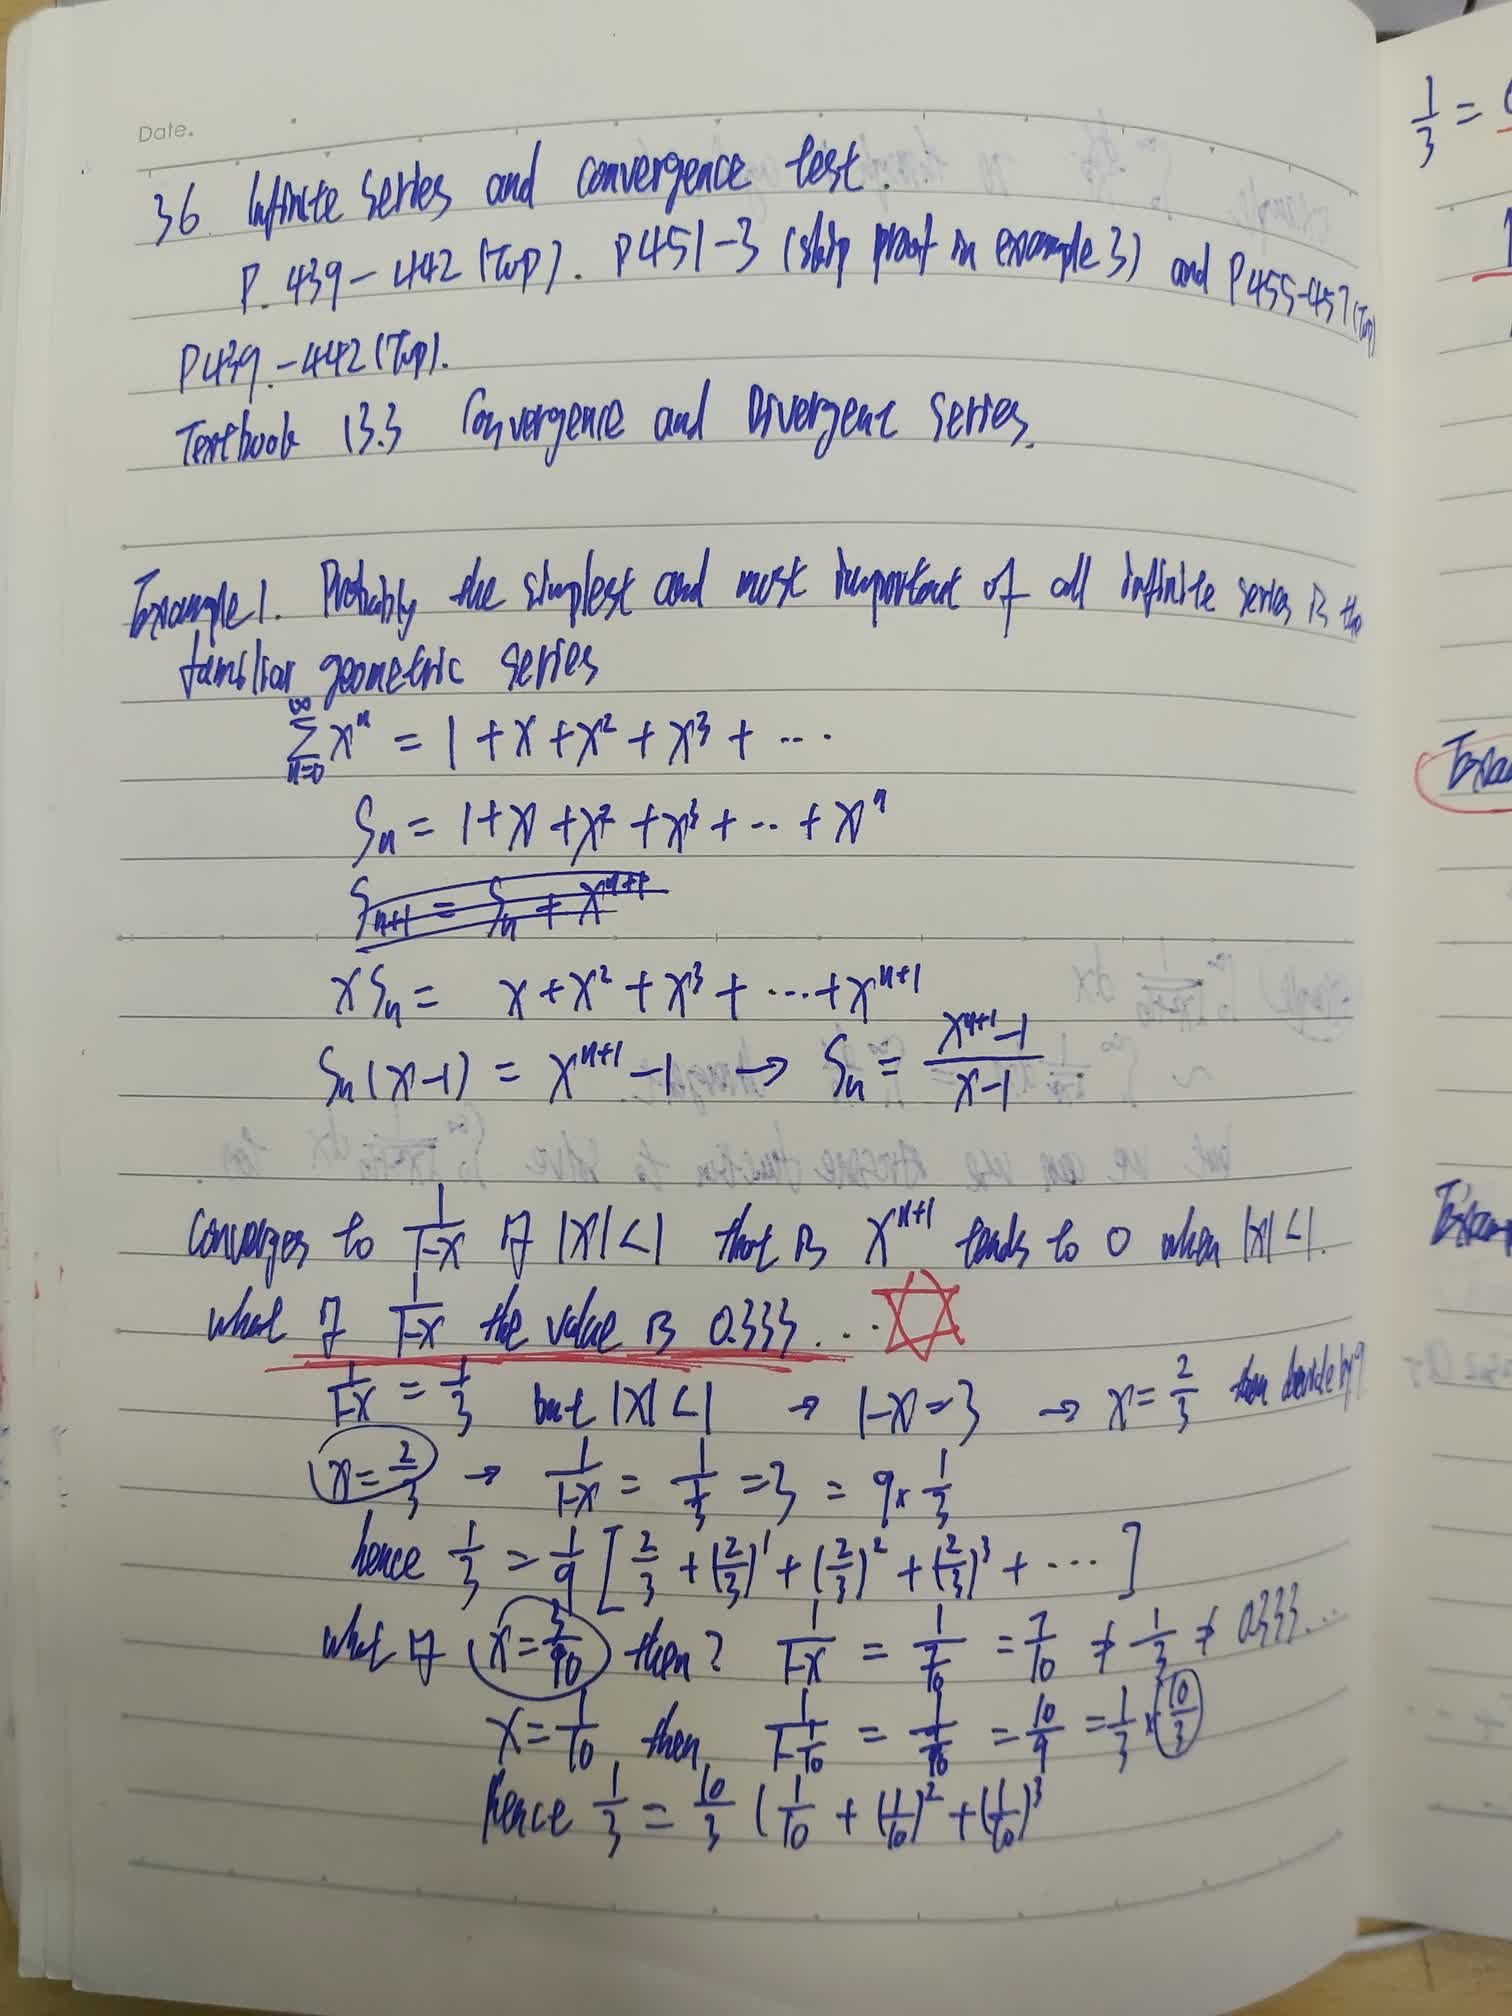 Date.
36 Infinite series and convergence test.
P. 439-442 (Top). P451-3 (skip proof in example 3) and P455-457 (Top)
P439.-442 (Top).
Textbook 13.3 Convergence and Divergent series.
Example 1. Probably the simplest and most important of all infinite series is the
familiar geometric series
∑_{n=0}^{∞} x^n = 1 + x + x² + x³ + ...
Sn = 1 + x + x² + x³ + ... + x^n
S_{n+1} = Sn + x^{n+1}
x Sn = x + x² + x³ + ... + x^{n+1}
Sn (x-1) = x^{n+1} - 1 → Sn = (x^{n+1} - 1)/(x-1)
converges to 1/(1-x) if |x| < 1 that is x^{n+1} tends to 0 when |x| < 1.
what if 1/(1-x) the value is 0.333...
1/(1-x) = 1/3 but |x| < 1 → 1-x = 3 → x = 2/3 then divide by 9
x = 2/3 → 1/(1-x) = 1/(1/3) = 3 = 9 × 1/3
hence 1/3 = 1/9 [2/3 + (2/3)^1 + (2/3)^2 + (2/3)^3 + ...]
what if x = 3/10 then? 1/(1-x) = 1/(7/10) = 7/10 ≠ 1/3 ≠ 0.333...
x = 1/10 then 1/(1-1/10) = 1/(9/10) = 10/9 = 1/3 × 10/3
hence 1/3 = 10/3 (1/10 + (1/10)^2 + (1/10)^3
1/3 =